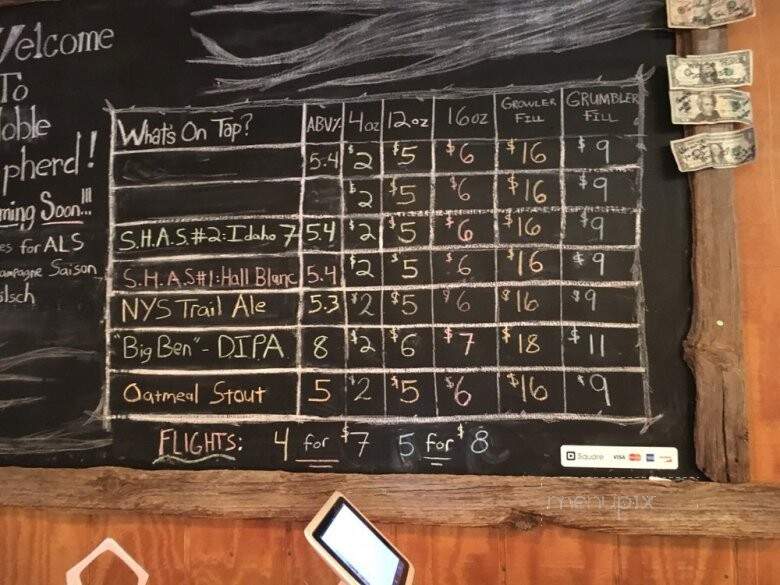 Welcome
To
oble
pherd!
ming Soon...!!
es for ALS
ampagne Saison
lsch
What's On Tap? ABV% 4oz 12oz 16oz GROWLER FILL GRUMBLER FILL
5.4 $2 $5 $6 $16 $9
$2 $5 $6 $16 $9
S.H.A.S.#2:Idaho 7 5.4 $2 $5 $6 $16 $9
S.H.A.S#1:Hall Blanc 5.4 $2 $5 $6 $16 $9
NYS Trail Ale 5.3 $2 $5 $6 $16 $9
"Big Ben"- DIPA 8 $2 $6 $7 $18 $11
Oatmeal Stout 5 $2 $5 $6 $16 $9
FLIGHTS: 4 for $7 5 for $8
Square VISA
menupix